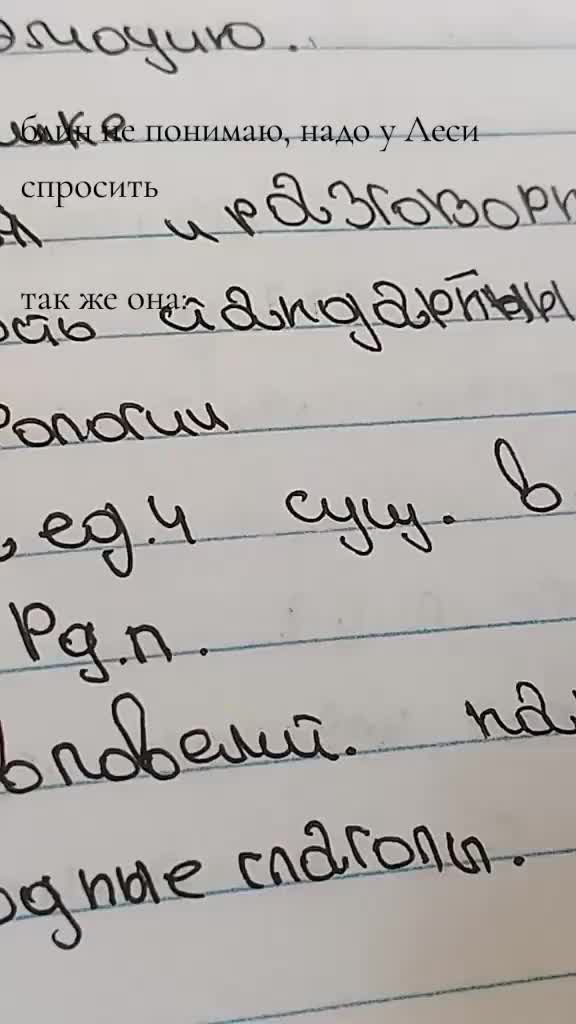 эмоцию.
блин не понимаю, надо у Леси
спросить
и разговорн
так же она:
ость стандартны
рологии
, ед.ч сущ. в
Рд.п.
в повелит. на
одные глаголы.